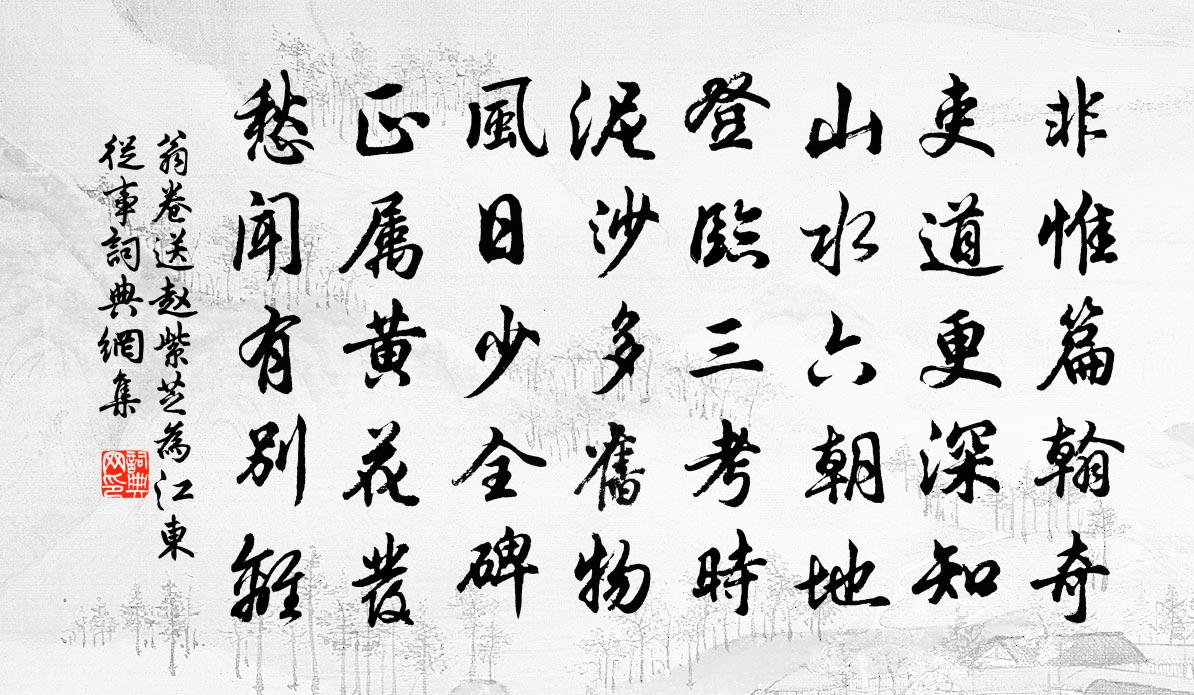 非惟篇翰奇
吏道更深知
山水六朝地
登臨三考時
泥沙多舊物
風日少全碑
正属黄花發
愁聞有别離
翁卷送赵紫芝為江東
從事詞典網集
詞典
网印